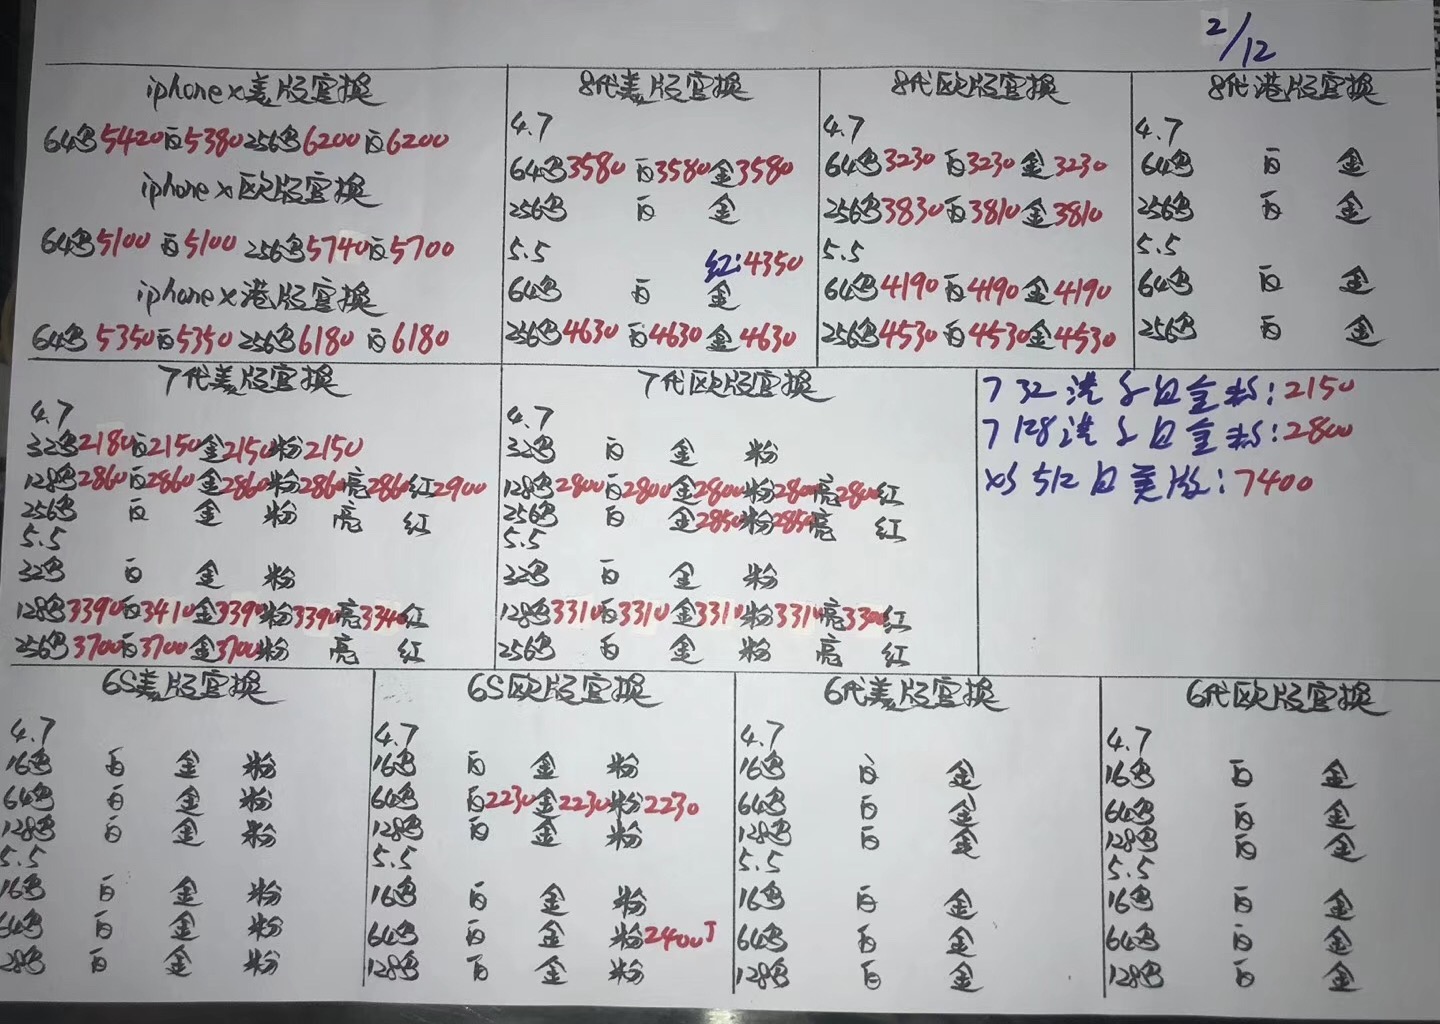 2/12
iphone x美版官换
64G 5420 白5380 256G 6200 白6200
iphone x欧版官换
64G 5100 白5100 256G 5740 白5700
iphone x港版官换
64G 5350 白5350 256G 6180 白6180
8代美版官换
4.7
64G 3580 白3580 金3580
256G 白 金
5.5
红:4350
64G 白 金
256G 4630 白4630 金4630
8代欧版官换
4.7
64G 3230 白3230 金3230
256G 3830 白3810 金3810
5.5
64G 4190 白4190 金4190
256G 4530 白4530 金4530
8代港版官换
4.7
64G 白 金
256G 白 金
5.5
64G 白 金
256G 白 金
7代美版官换
4.7
32G 2180 白2150 金2150 粉2150
128G 2860 白2860 金2860 粉2860 亮2860 红2900
256G 白 金 粉 亮 红
5.5
32G 白 金 粉
128G 3390 白3410 金3390 粉3390 亮3340 红
256G 3700 白3700 金3700 粉 亮 红
7代欧版官换
4.7
32G 白 金 粉
128G 2800 白2800 金2800 粉2800 亮2800 红
256G 白 金2850 粉2850 亮 红
5.5
32G 白 金 粉
128G 3310 白3310 金3310 粉3310 亮3300 红
256G 白 金 粉 亮 红
7 32 港 白金粉:2150
7 128 港 白金粉:2800
XS 512 白 美版:7400
6S美版官换
4.7
16G 白 金 粉
64G 白 金 粉
128G 白 金 粉
5.5
16G 白 金 粉
64G 白 金 粉
28G 白 金 粉
6S欧版官换
4.7
16G 白 金 粉
64G 白2230 金2230 粉2230
128G 白 金 粉
5.5
16G 白 金 粉
64G 白 金 粉2400J
128G 白 金 粉
6代美版官换
4.7
16G 白 金
64G 白 金
128G 白 金
5.5
16G 白 金
64G 白 金
128G 白 金
6代欧版官换
4.7
16G 白 金
64G 白 金
128G 白 金
5.5
16G 白 金
64G 白 金
128G 白 金